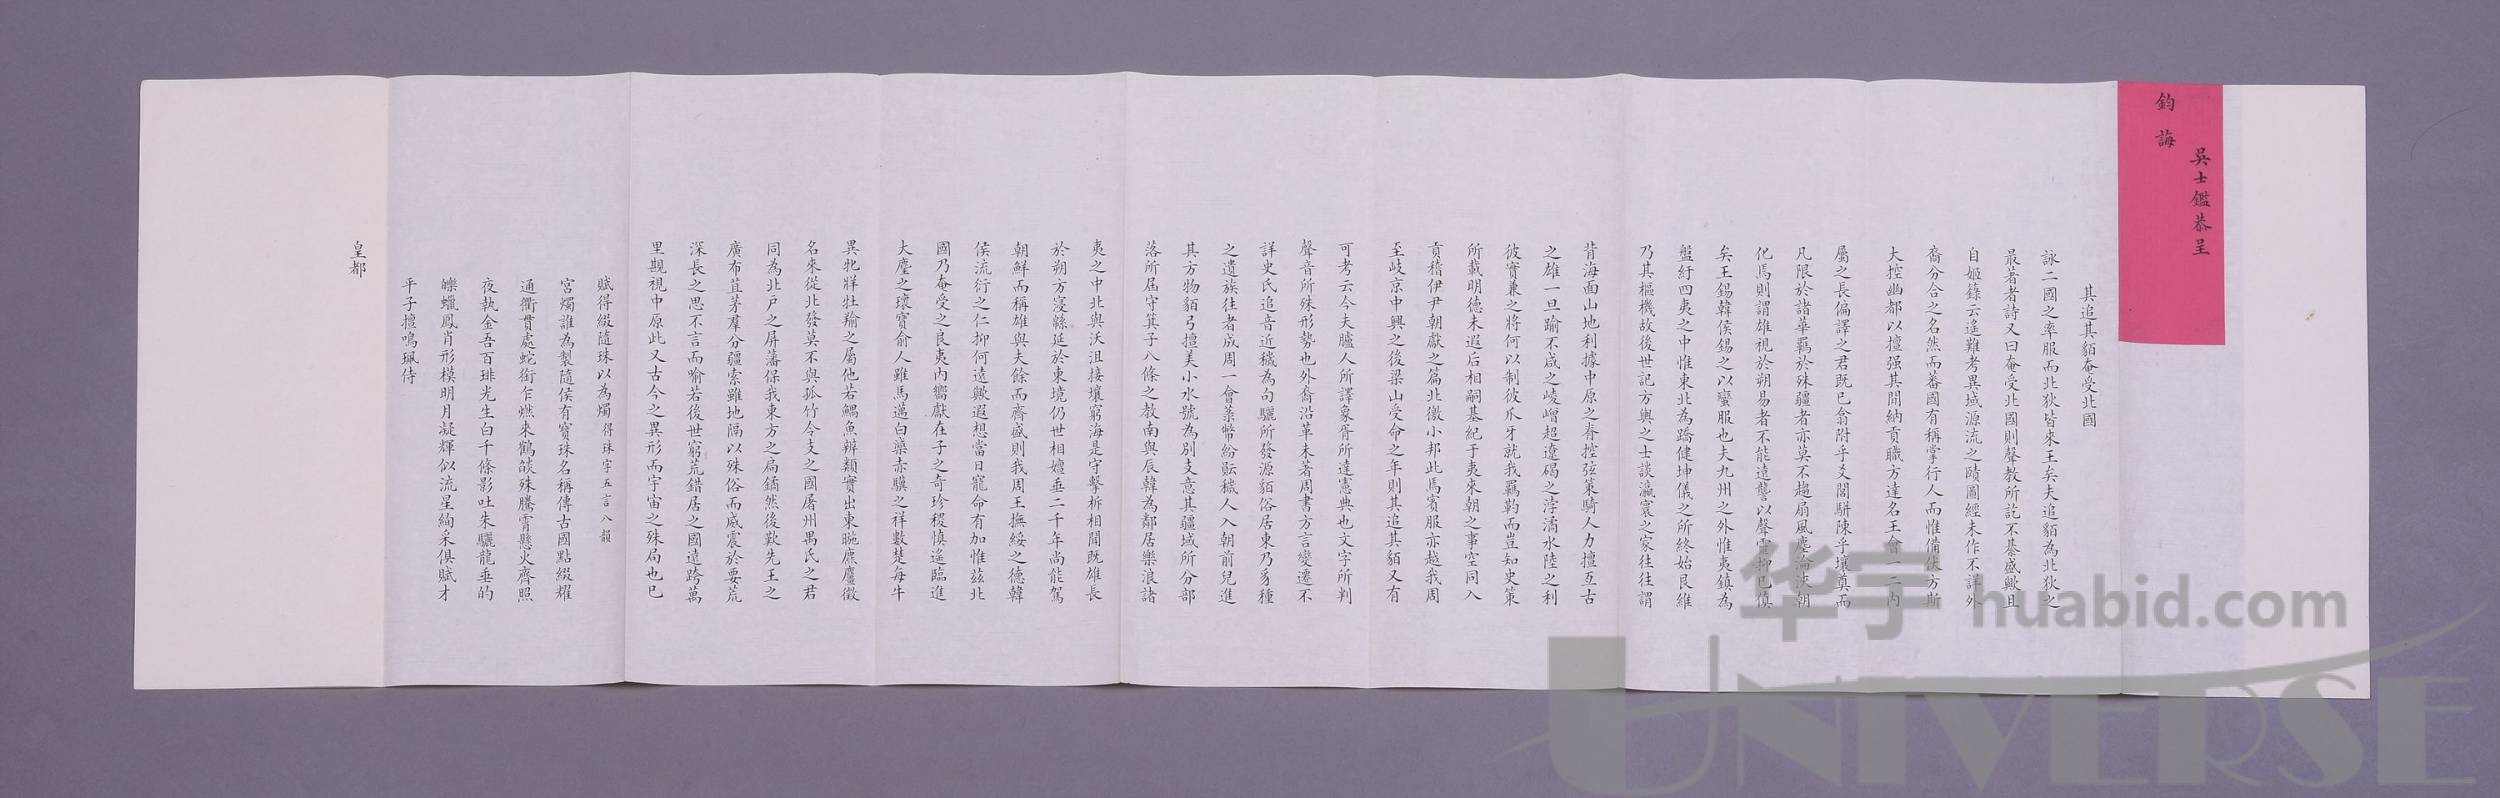 吳士鑑恭呈
鈞誨
其追其貊奄受北國
詠二國之率服而北狄皆來王矣夫追貊為北狄之
最著者詩又曰奄受北國則聲教所訖不綦盛歟且
自姬錄云遙難考異域源流之賾圖經未作不詳外
裔分合之名然而蕃國有稱掌行人而惟備侯方斯
大控幽都以擅强其間納貢職方達名王會一二內
屬之長偏譯之君既已翕附乎爻閭駢陳乎壤奠而
凡限於諸華羈於殊疆者亦莫不趨扇風塵淪浹朝
化馬則謂雄視於朔易者不能遠讋以聲靈抑已慎
矣王錫韓侯錫之以蠻服也夫九州之外惟夷鎮為
盤紆四夷之中惟東北為蹻健坤儀之所終始艮維
乃其樞機故後世記方輿之士談瀛寰之家往往謂
背海面山地利據中原之脊控弦策騎人力擅亙古
之雄一旦踰不咸之崚嶒超遼碣之渟潏水陸之利
彼實兼之將何以制彼爪牙就我羈靮而豈知史策
所載明德未遐后相嗣基紀于夷來朝之事空同入
貢稽伊尹朝獻之篇北徼小邦此馬賓服亦越我周
至岐京中興之後梁山受命之年則其追其貊又有
可考云今夫臚人所譯象胥所達憲典也文字所判
聲音所殊形勢也外裔沿革未著周書方言變遷不
詳史氏追音近穢為句驪所發源貊俗居東乃豸種
之遺族往者成周一會菉幣紛貶穢人入朝前兒進
其方物貊弓擅美小水號為別支意其疆域所分部
落所屆守箕子八條之教南與辰韓為鄰居樂浪諸
夷之中北與沃沮接壤窮海是守擊柝相聞既雄長
於朔方寖緜延於東境仍世相嬗垂二千年尚能駕
朝鮮而稱雄與夫餘而齊盛則我周王撫綏之德韓
侯流衍之仁抑何遠歟遐想當日寵命有加惟茲北
國乃奄受之良夷內嚮獻在子之奇珍稷慎遙臨進
大麈之瓌寶俞人雖馬邁白藥赤驥之祥數楚每牛
異牝牂牡羭之屬他若鰅魚辨類實出東暆麃麠徵
名來從北發莫不與孤竹令支之國屠州禺氏之君
同為北戶之屏藩保我東方之扃鐍然後歎先王之
廣布苴茅羣分疆索雖地隔以殊俗而威震於要荒
深長之思不言而喻若後世窮荒錯居之國遠跨萬
里覬視中原此又古今之異形而宇宙之殊局也已
賦得綴隨珠以為燭得珠字五言八韻
宮燭誰為製隨侯有寶珠名稱傳古國點綴耀
通衢貫處蛇銜乍燃來鶴燄殊騰霄懸火齊照
夜執金吾百琲光生白千條影吐朱驪龍垂的
皪蠟鳳肖形模明月凝輝似流星絢采俱賦才
平子擅鳴珮侍
皇都
华宇 huabid.com
UNIVERSE